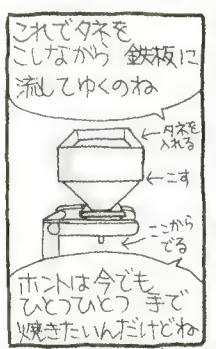 これでタネを
こしながら 鉄板に
流してゆくのね
タネを
入れる
こす
ここから
でる
ホントは今でも
ひとつひとつ 手で
焼きたいんだけどね